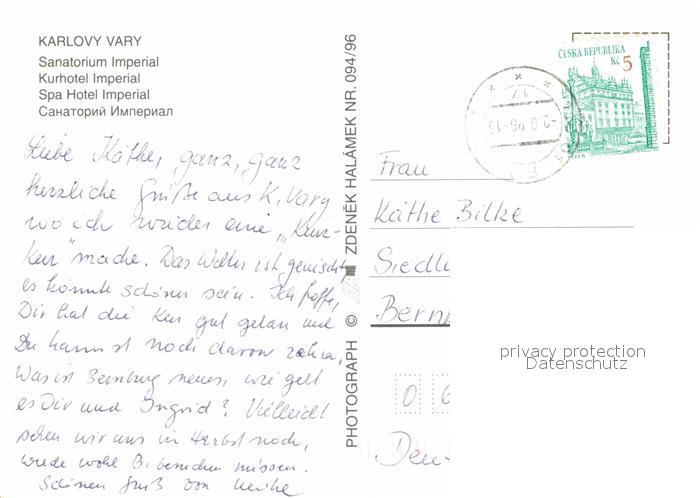 KARLOVY VARY
Sanatorium Imperial
Kurhotel Imperial
Spa Hotel Imperial
Санаторий Империал
Liebe Käthe, ganz, ganz
herzliche Grüße aus K. Vary
wo ich wieder eine „Kurz-
Kur" mache. Das Wetter ist gemischt,
es könnte schöner sein. Ich hoffe,
Dir hat die Kur gut getan und
Du kannst noch davon zehren.
Was ist Bernburg neues, wie geht
es Dir und Ingrid? Vielleicht
sehen wir uns im Herbst noch,
werde wohl B. besuchen müssen.
Schönen Gruß von
PHOTOGRAPH © ZDENĚK HALÁMEK NR. 094/96
ČESKÁ REPUBLIKA
Kč 5
Frau
Käthe Bilke
Siedl
Bern
0 6
Deu
privacy protection
Datenschutz